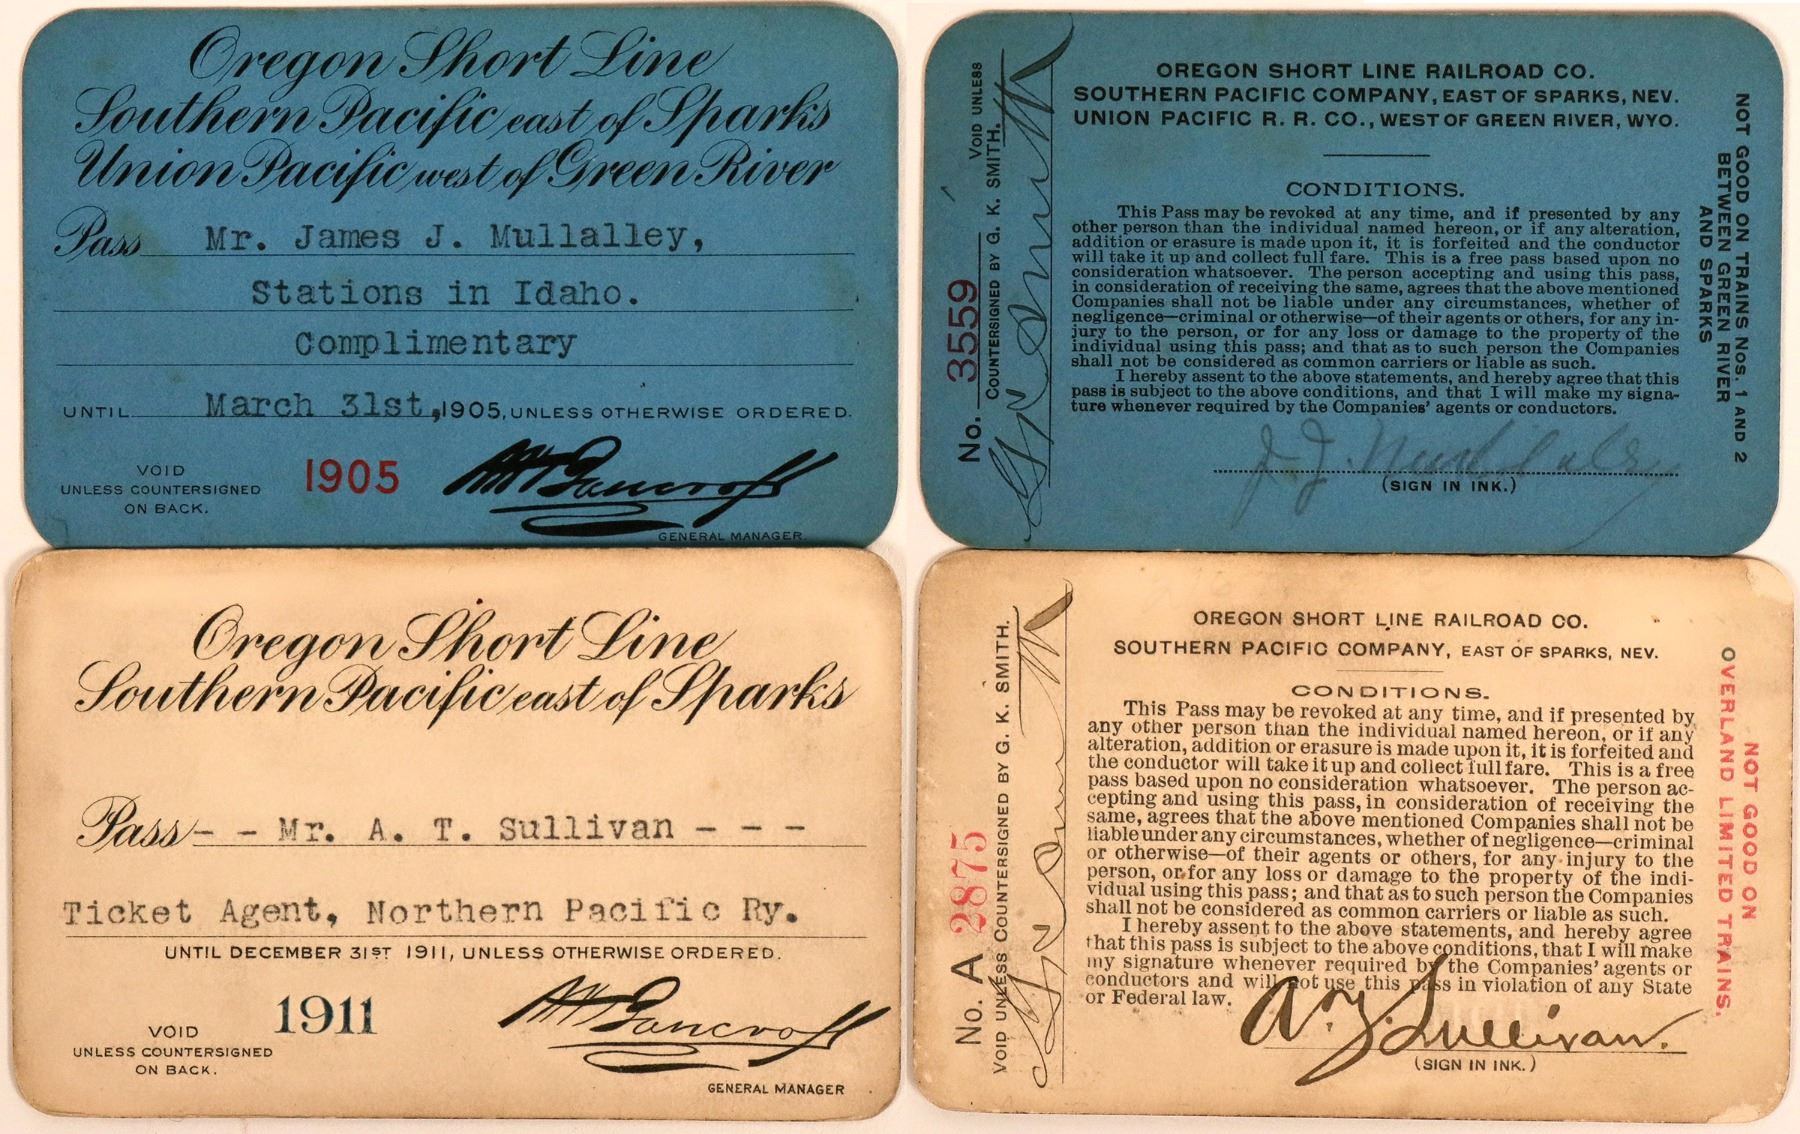 Oregon Short Line
Southern Pacific east of Sparks
Union Pacific west of Green River
Pass Mr. James J. Mullalley,
Stations in Idaho.
Complimentary
UNTIL March 31st, 1905, UNLESS OTHERWISE ORDERED.
VOID
UNLESS COUNTERSIGNED
ON BACK.
1905
GENERAL MANAGER.
No. 3559
VOID UNLESS
COUNTERSIGNED BY G. K. SMITH.
OREGON SHORT LINE RAILROAD CO.
SOUTHERN PACIFIC COMPANY, EAST OF SPARKS, NEV.
UNION PACIFIC R. R. CO., WEST OF GREEN RIVER, WYO.
CONDITIONS.
This Pass may be revoked at any time, and if presented by any
other person than the individual named hereon, or if any alteration,
addition or erasure is made upon it, it is forfeited and the conductor
will take it up and collect full fare. This is a free pass based upon no
consideration whatsoever. The person accepting and using this pass,
in consideration of receiving the same, agrees that the above mentioned
Companies shall not be liable under any circumstances, whether of
negligence—criminal or otherwise—of their agents or others, for any in-
jury to the person, or for any loss or damage to the property of the
individual using this pass; and that as to such person the Companies
shall not be considered as common carriers or liable as such.
I hereby assent to the above statements, and hereby agree that this
pass is subject to the above conditions, and that I will make my signa-
ture whenever required by the Companies' agents or conductors.
(SIGN IN INK.)
NOT GOOD ON TRAINS Nos. 1 AND 2
BETWEEN GREEN RIVER
AND SPARKS
Oregon Short Line
Southern Pacific east of Sparks
Pass - - Mr. A. T. Sullivan - - -
Ticket Agent, Northern Pacific Ry.
UNTIL DECEMBER 31ST 1911, UNLESS OTHERWISE ORDERED.
VOID
UNLESS COUNTERSIGNED
ON BACK.
1911
GENERAL MANAGER
No. A 2875
VOID UNLESS COUNTERSIGNED BY G. K. SMITH.
OREGON SHORT LINE RAILROAD CO.
SOUTHERN PACIFIC COMPANY, EAST OF SPARKS, NEV.
CONDITIONS.
This Pass may be revoked at any time, and if presented by
any other person than the individual named hereon, or if any
alteration, addition or erasure is made upon it, it is forfeited and
the conductor will take it up and collect full fare. This is a free
pass based upon no consideration whatsoever. The person ac-
cepting and using this pass, in consideration of receiving the
same, agrees that the above mentioned Companies shall not be
liable under any circumstances, whether of negligence—criminal
or otherwise—of their agents or others, for any injury to the
person, or for any loss or damage to the property of the indi-
vidual using this pass; and that as to such person the Companies
shall not be considered as common carriers or liable as such.
I hereby assent to the above statements, and hereby agree
that this pass is subject to the above conditions, that I will make
my signature whenever required by the Companies' agents or
conductors and will not use this pass in violation of any State
or Federal law.
A. T. Sullivan.
(SIGN IN INK.)
NOT GOOD ON
OVERLAND LIMITED TRAINS.